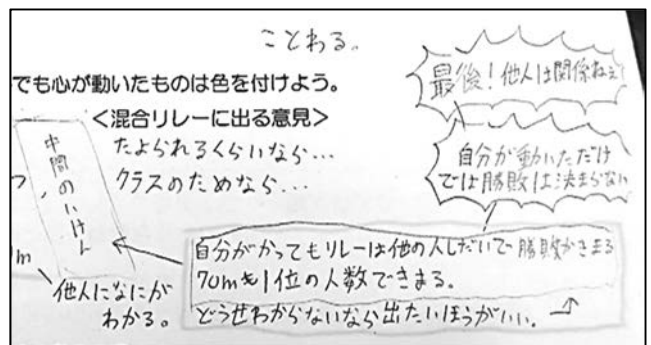 ことわる。
でも心が動いたものは色を付けよう。
<混合リレーに出る意見>
たよられるくらいなら…
クラスのためなら…
最後!他人は関係ねえ
自分が動いただけ
では勝敗は決まらない
中間のいけん
自分がかってもリレーは他の人しだいで勝敗がきまる
70mも1位の人数できまる。
どうせわからないなら出たいほうがいい。
他人になにが
わかる。